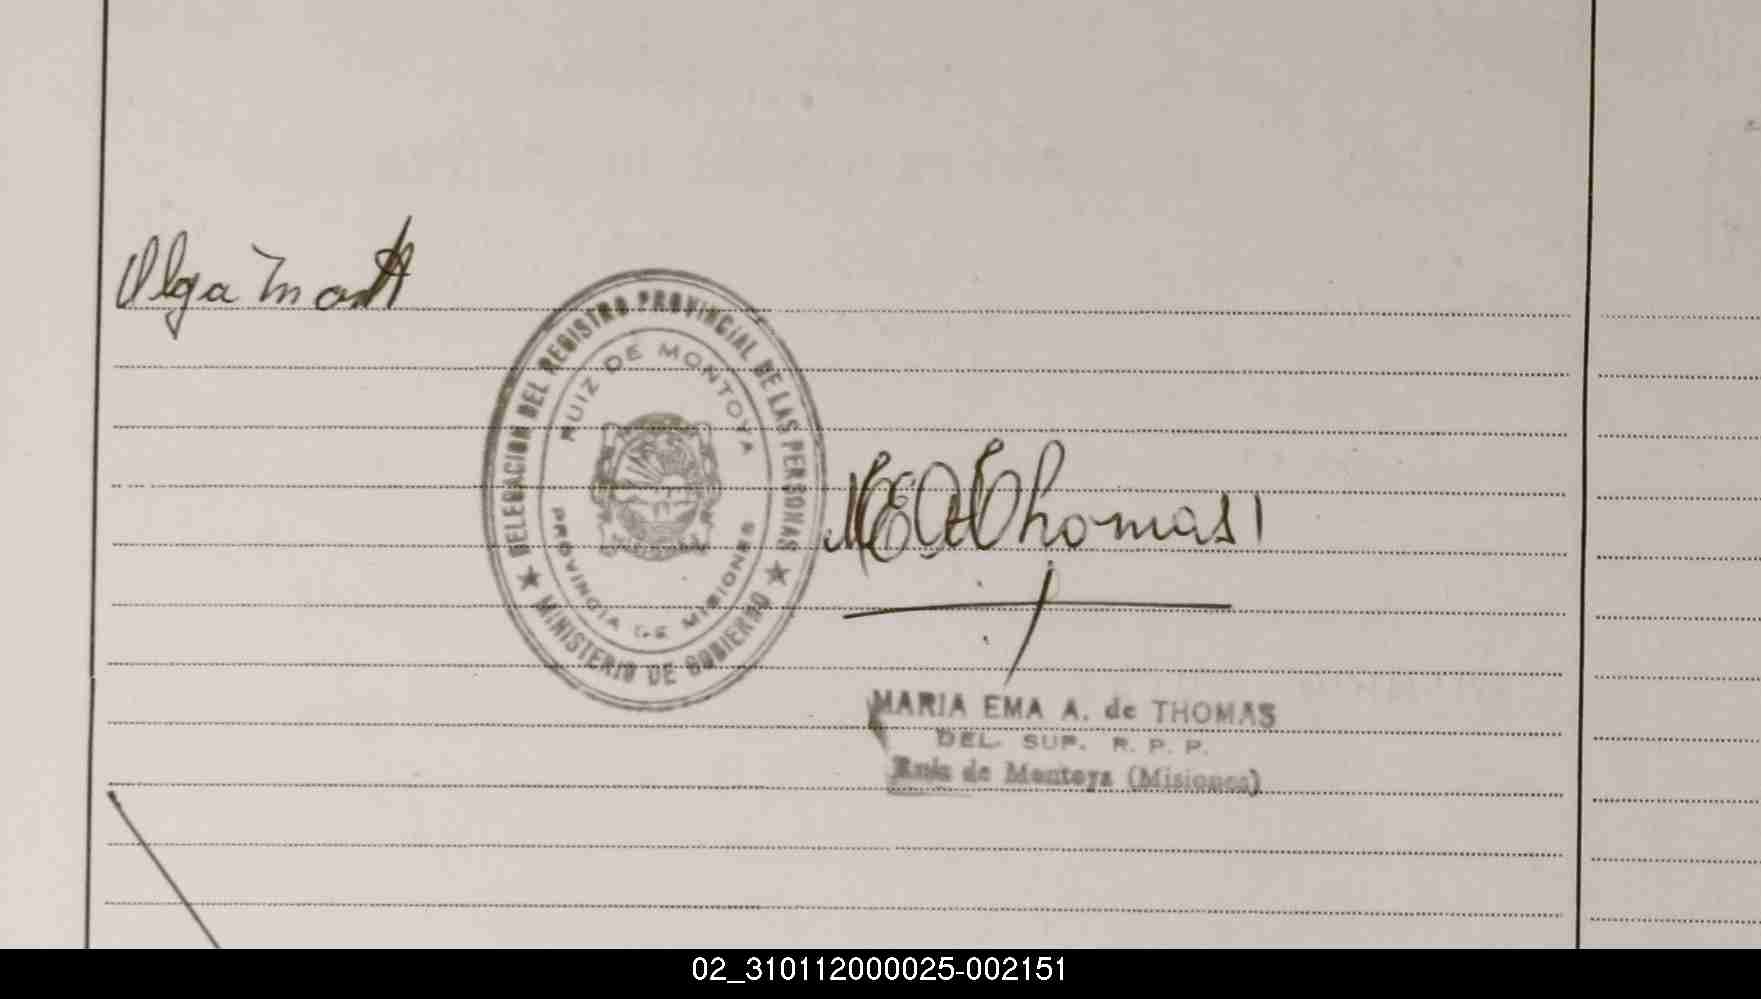 Olga
DELEGACION DEL REGISTRO PROVINCIAL DE LAS PERSONAS
RUIZ DE MONTOYA
PROVINCIA DE MISIONES
★ MINISTERIO DE GOBIERNO ★
MEA Thomas
MARIA EMA A. de THOMAS
DEL. SUP. R. P. P.
Ruiz de Montoya (Misiones)
02_310112000025-002151